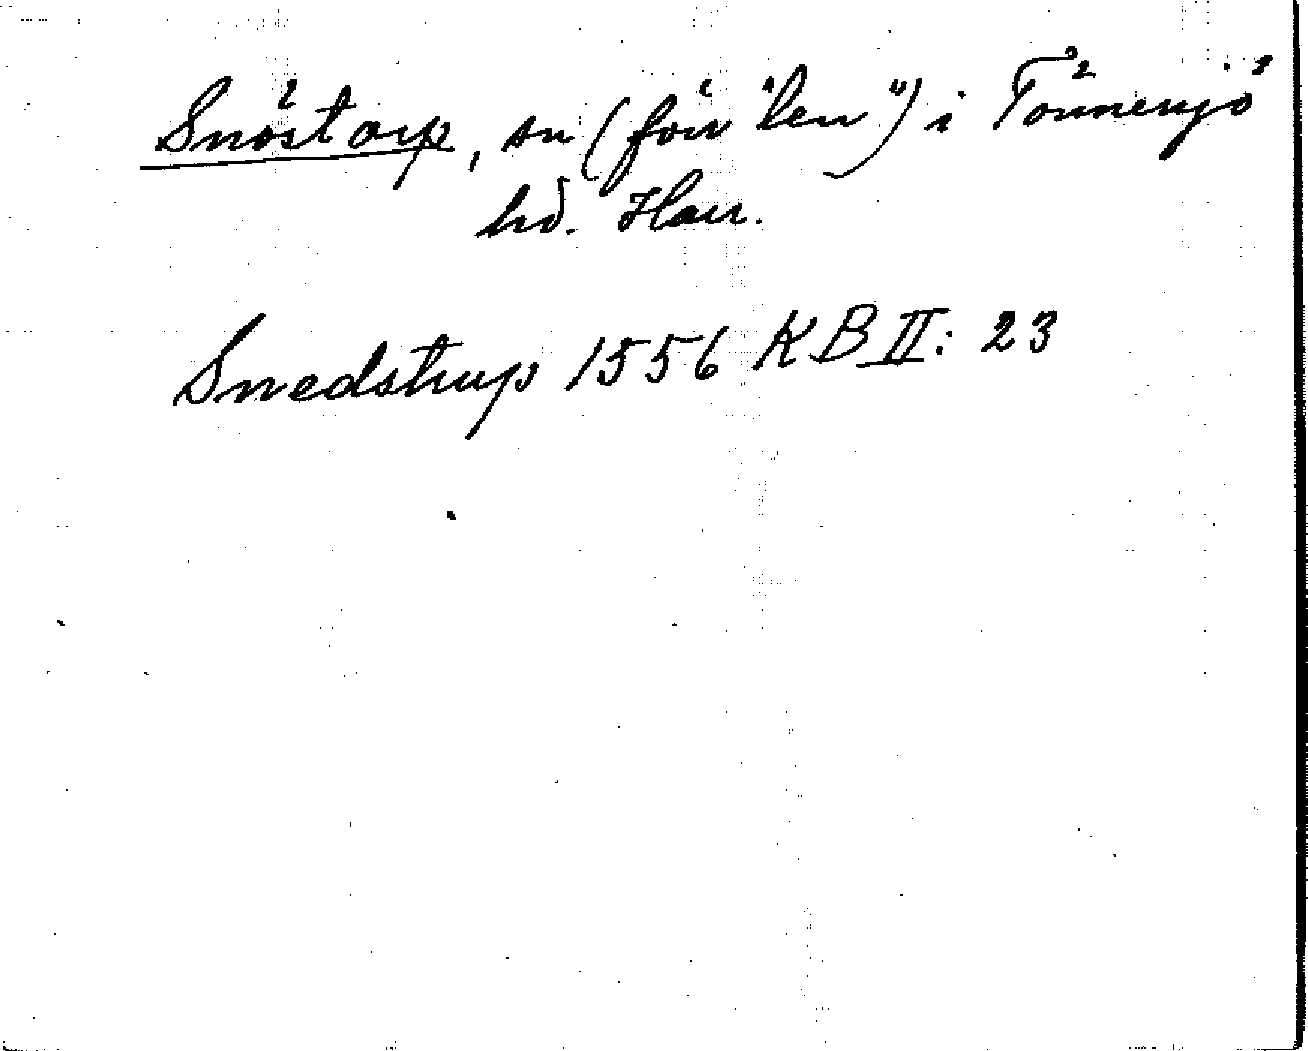 Snöstorp, sn (förr "län") i Tönnersjö
hd. Hall.
Snedstrup 1556 KB II: 23